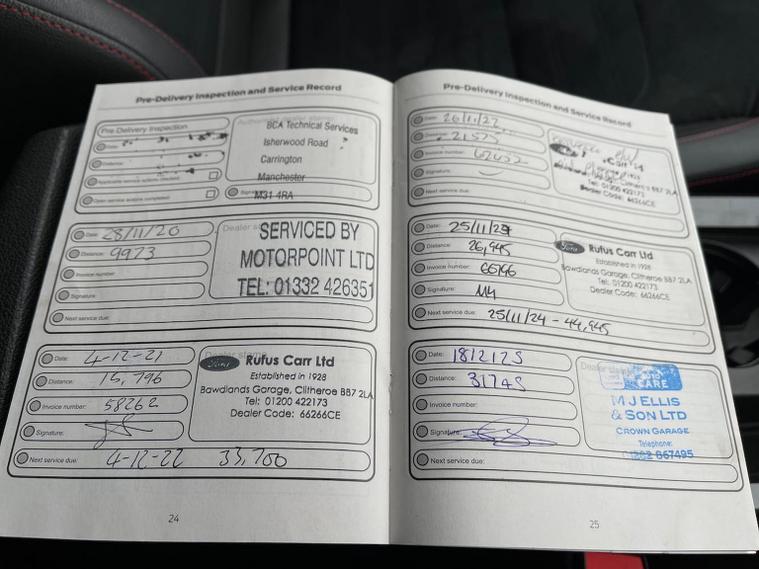 Pre-Delivery Inspection and Service Record
Pre-Delivery Inspection
Date:
Distance:
BCA Technical Services
Isherwood Road
Carrington
Manchester
M31 4RA
Date: 28/11/20
Distance: 9923
Invoice number:
Signature:
Next service due:
Dealer
SERVICED BY
MOTORPOINT LTD
TEL: 01332 426351
Date: 4-12-21
Distance: 15,796
Invoice number: 58262
Signature:
Next service due: 4-12-22 33,700
Ford
Rufus Carr Ltd
Established in 1928
Bawdlands Garage, Clitheroe BB7 2LA
Tel: 01200 422173
Dealer Code: 66266CE
24
Pre-Delivery Inspection and Service Record
Date: 26/11/22
Distance: 21575
Invoice number: 62452
Signature:
Next service due:
Tel: 01200 422173
Dealer Code: 66266CE
Date: 25/11/23
Distance: 26,945
Invoice number: 66196
Signature:
Next service due: 25/11/24 - 44,945
Ford
Rufus Carr Ltd
Established in 1928
Bawdlands Garage, Clitheroe BB7 2LA
Tel: 01200 422173
Dealer Code: 66266CE
Date: 18/2/25
Distance: 31745
Invoice number:
Signature:
Next service due:
CARE
M J ELLIS
& SON LTD
CROWN GARAGE
Telephone:
01282 867495
25